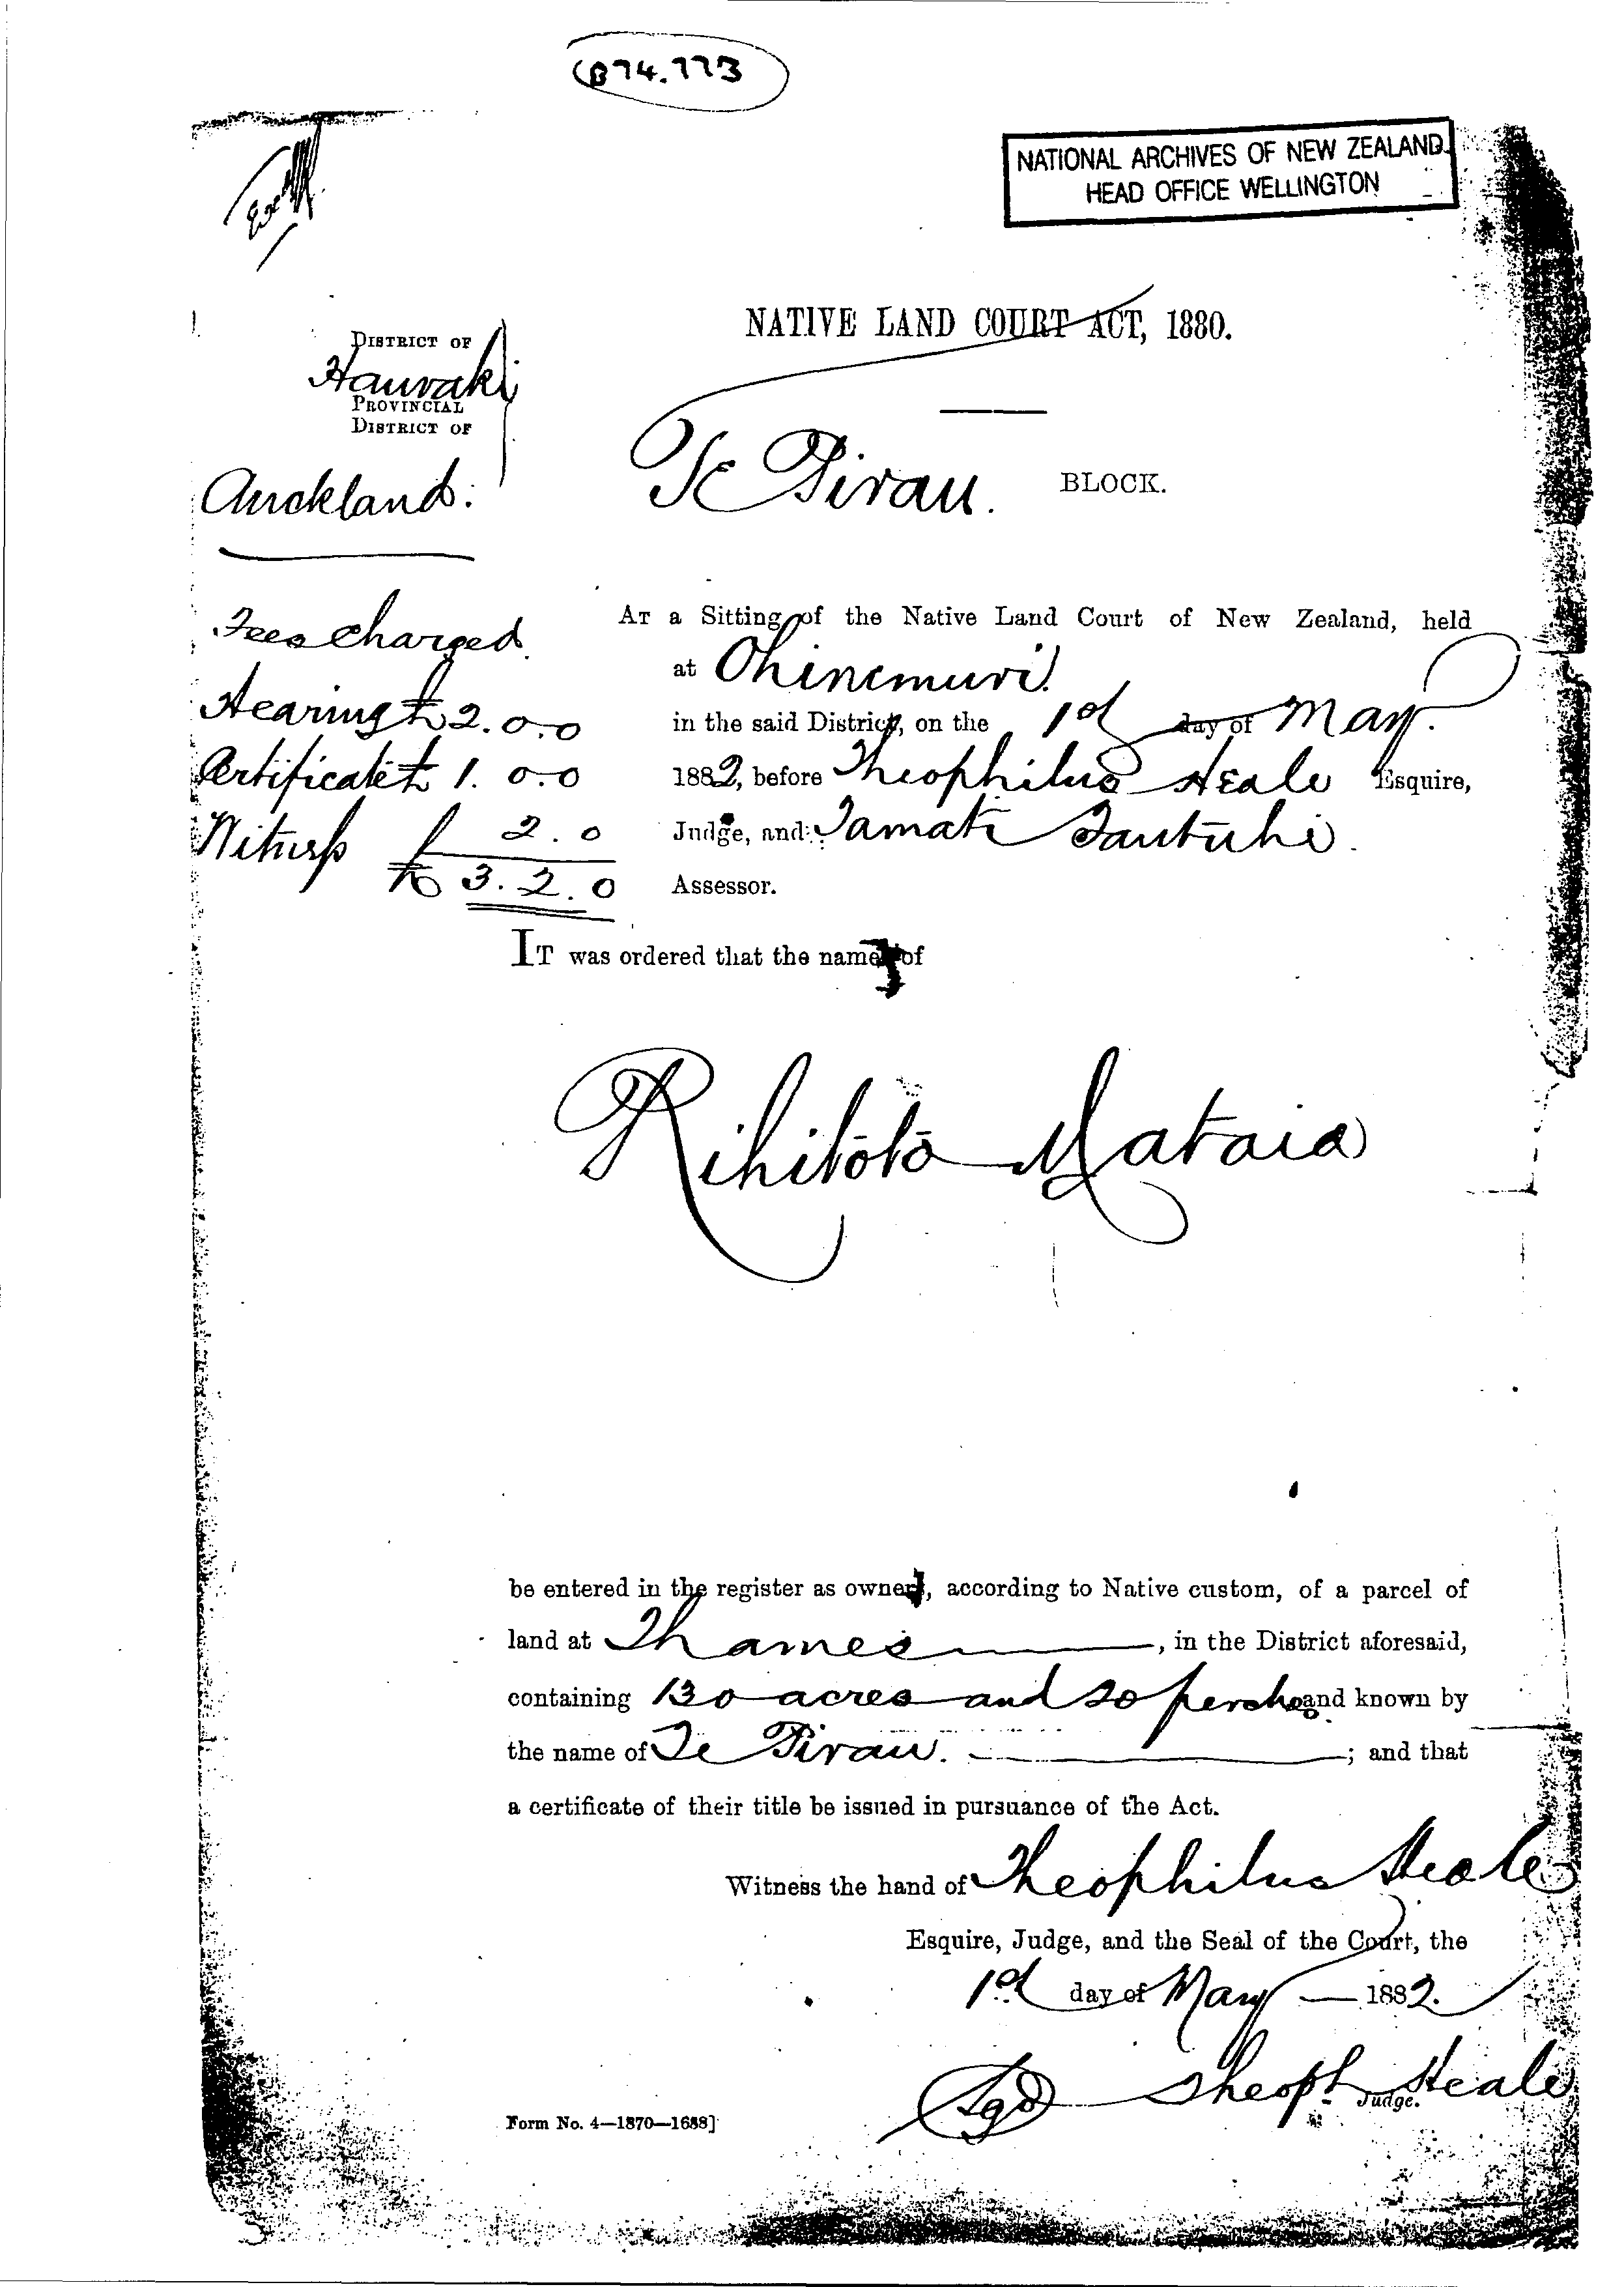 B74.773
NATIONAL ARCHIVES OF NEW ZEALAND
HEAD OFFICE WELLINGTON
NATIVE LAND COURT ACT, 1880.
DISTRICT OF
Hauraki
PROVINCIAL
DISTRICT OF
Auckland.
Te Pirau. BLOCK.
Fees Charged
Hearing £ 2.0.0
Certificate £ 1.0.0
Witness 2.0
£ 3.2.0
AT a Sitting of the Native Land Court of New Zealand, held
at Ohinemuri
in the said District, on the 1st day of May.
1882, before Theophilus Heale Esquire,
Judge, and Tamati Tautuhi.
Assessor.
IT was ordered that the name of
Rihitoto Mataia
be entered in the register as owner, according to Native custom, of a parcel of
land at Thames, in the District aforesaid,
containing 130 acres and 20 perches and known by
the name of Te Pirau. ; and that
a certificate of their title be issued in pursuance of the Act.
Witness the hand of Theophilus Heale
Esquire, Judge, and the Seal of the Court, the
1st day of May 1882.
Sgd Theoph Heale
Judge.
Form No. 4—1870—1688]